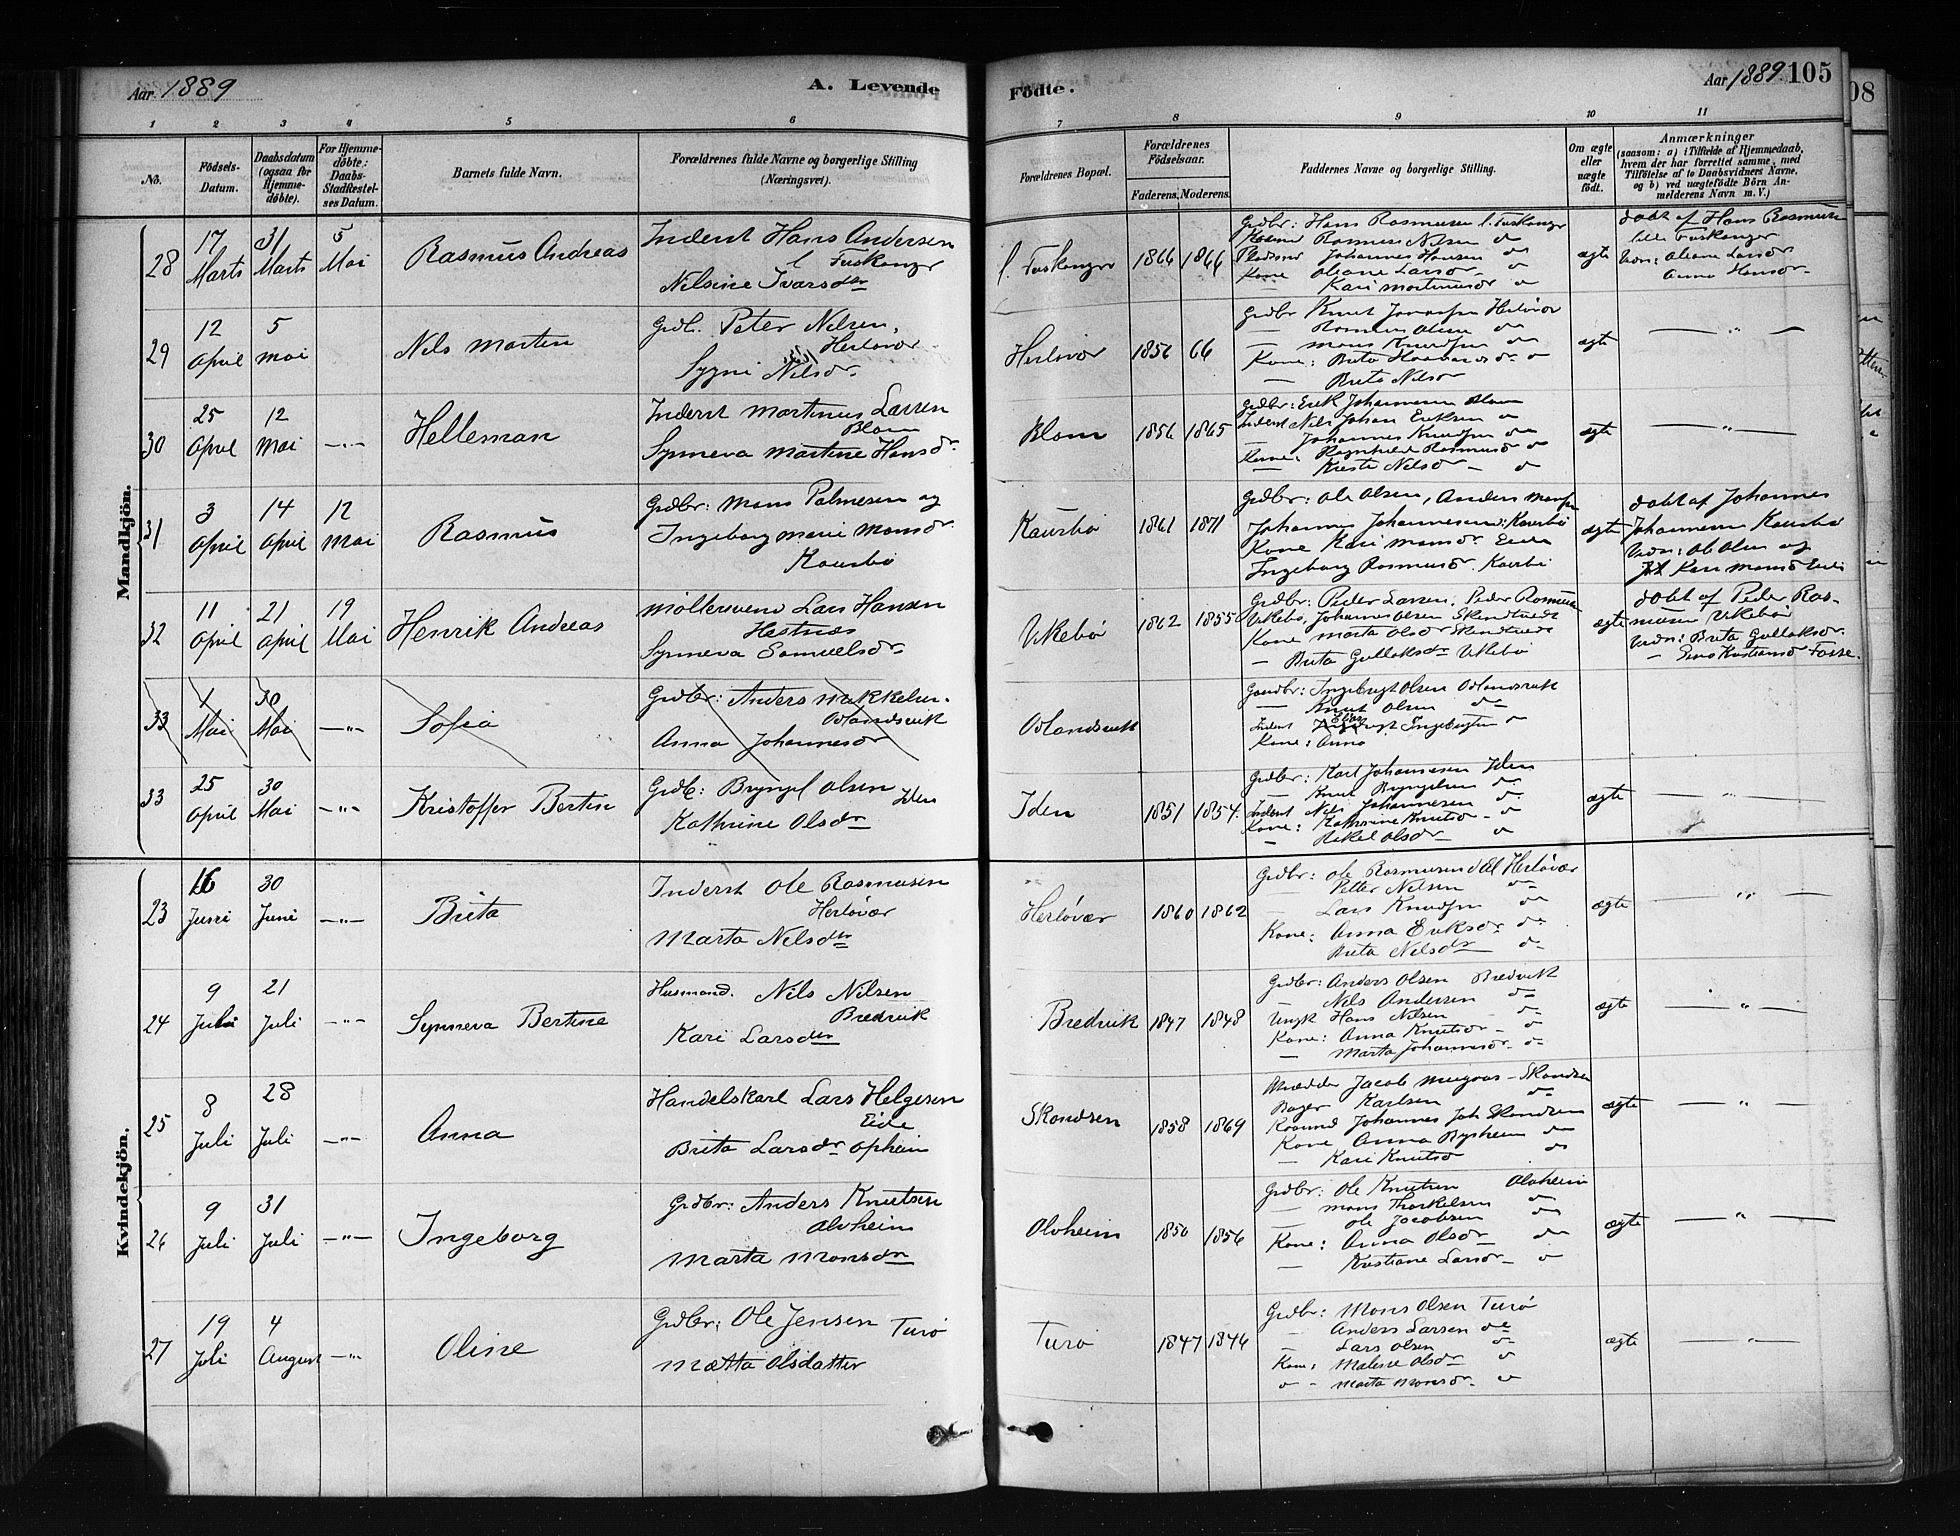 Aar 1889
A. Levende
Födte.
Aar 1889.
105
08
1 2 3 4 5 6 7 8 9 10 11
No.
Födsels-
Datum.
Daabsdatum
(ogsaa for
Hjemme-
döbte).
For Hjemme-
döbte:
Daabs-
Stadfæstel-
ses Datum.
Barnets fulde Navn.
Forældrenes fulde Navne og borgerlige Stilling
(Næringsvei).
Forældrenes Bopæl.
Forældrenes
Födselsaar.
Faderens. Moderens.
Faddernes Navne og borgerlige Stilling.
Om ægte
eller
uægte
födt.
Anmærkninger
(saasom: a) i Tilfælde af Hjemmedaab,
hvem der har forrettet samme, med
Tilföielse af to Daabsvidners Navne,
og b) ved uægtefödte Börn An-
melderens Navn m. V.)
Mandkjön.
28
17
Marts
31
Marts
5
Mai
Rasmus Andreas
Inderst Hans Andersen
l. Tuskanger
Nilsine Ivarsdr
l. Tuskanger
1866 1866
Grdbr: Hans Rasmusen l. Tuskanger
Rasmus Nilsen do
Pladsmd Johannes Hansen do
Kone Oleane Larsdr do
Kari Martinusdr do
ægte
döbt af Hans Rasmusen
lille Tuskanger
Vidn: Oleane Larsdr
Anna Hansdr
29
12
April
5
Mai
Nils Marten
Grdb. Peter Nilsen,
Herlövær
Sygni Nilsdr.
Herlövær
1856 66
Grdbr Knut Herlövær
Rasmus Olsen do
Mons Knudsen do
Kone: Brita do
Brita Nilsdr
ægte
— " —
30
25
April
12
Mai
—"—
Helleman
Inderst Martinus Larsen
Blom
Synneva Martine Hansdr.
Blom
1856 1865
Grdbr: Erik Johannesen Blom
Inderst Nils Johan Eriksen do
Johannes Knudsen do
Kone: Ragnhild Rasmusdr do
Kirsti Nilsdr — do
ægte
— " —
31
3
April
14
April
12
Mai
Rasmus
Grdbr: Mons Palmesen og
Ingeborg Marie Monsdr
Kaursbö
Kaursbö
1861 1871
Grdbr: Ole Olsen, Anders Monsen
Johannes Johannesen: Kaursbö
Kone Kari Monsdr Eide
Ingeborg Rasmusdr. Kaursbö
ægte
döbt af Johannes
Johannesen Kaursbö
Vidn: Ole Olsen og
Kari Monsdr Eide
32
11
April
21
April
19
Mai
Henrik Andreas
Möllersvend Lars Hansen
Hestnæs
Synneva Samuelsdr
Ukebö
1862 1855
Grdbr: Peder Larsen, Peder Rasmusen
Ukebö, Johannes Olsen Skendtveds
Kone Marta Olsdr Skendtveds
— Brita Gullaksdr Ukebö
ægte
döbt af Peder Ras-
musen Ukebö
Vidn: Brita Gullaksdr.
— Fosse.
33
1
Mai
30
Mai
—"—
Sofia
Grdbr: Anders Mikkelsen
Odlandsvik
Anna Johannesdr
Odlandsvik
Gaardbr: Ingebrigt Olsen Odlandsvik
— Knut Olsen do
Inderst Elias Ingebrigtsen do
Kone: Anna
33
25
April
30
Mai
—"—
Kristoffer Bertin
Grdb: Bryngel Olsen
Iden
Kathrine Olsdr
Iden
1851 1854.
Grdbr: Karl Johannesen Iden
— Knut Bryngelsen do
Inderst Nils Johannesen do
Kone: Kathrine Knutsdr do
— Rakel Olsdr do
ægte
— " —
Kvindekjön.
23
16
Juni
30
Juni
—"—
Brita
Inderst Ole Rasmusen
Herlövær
Marta Nilsdr
Herlövær
1860 1862
Grdbr: Ole Rasmusen Herlövær
Petter Nilsen do
— Lars Knudsen do
Kone: Anna Eriksdr do
Brita Nilsdr do
ægte
— " —
24
9
Juli
21
Juli
—"—
Synneva Bertine
Husmand. Nils Nilsen
Bredvik
Kari Larsdr
Bredvik
1847 1848
Grdbr: Anders Olsen Bredvik
— Nils Andersen do
Ungk Hans Nilsen do
Kone: Anna Knutsdr do
— Marta Johannesdr do
ægte
— " —
25
8
Juli
28
Juli
—"—
Anna
Handelskarl Lars Helgesen
Eide
Brita Larsdr Opheim
Skandsen
1858 1869
Jacob Skandsen
Bager Karlsen do
Johannes Joh Skandsen
Kone Anna Bysheim do
— Kari Knutsdr do
ægte
— " —
26
9
Juli
31
Juli
—"—
Ingeborg
Grdbr: Anders Knutsen
Alvheim
Marta Monsdr
Alvheim
1850 1856
Grdbr: Ole Knutsen Alvheim
— Mons Thorkelsen do
— Ole Jacobsen do
Kone: Anna Olsdr do
— Kristiane Larsdr do
ægte
— " —
27
19
Juli
4
August
—"—
Oline
Grdbr: Ole Jensen Turö
Mætta Olsdatter
Turö
1847 1846
Grdbr: Mons Olsen Turö
— Anders Larsen do
— Lars Olsen do
Kone: Malene Olsdr do
do - Marta Monsdr. do
ægte
— " —